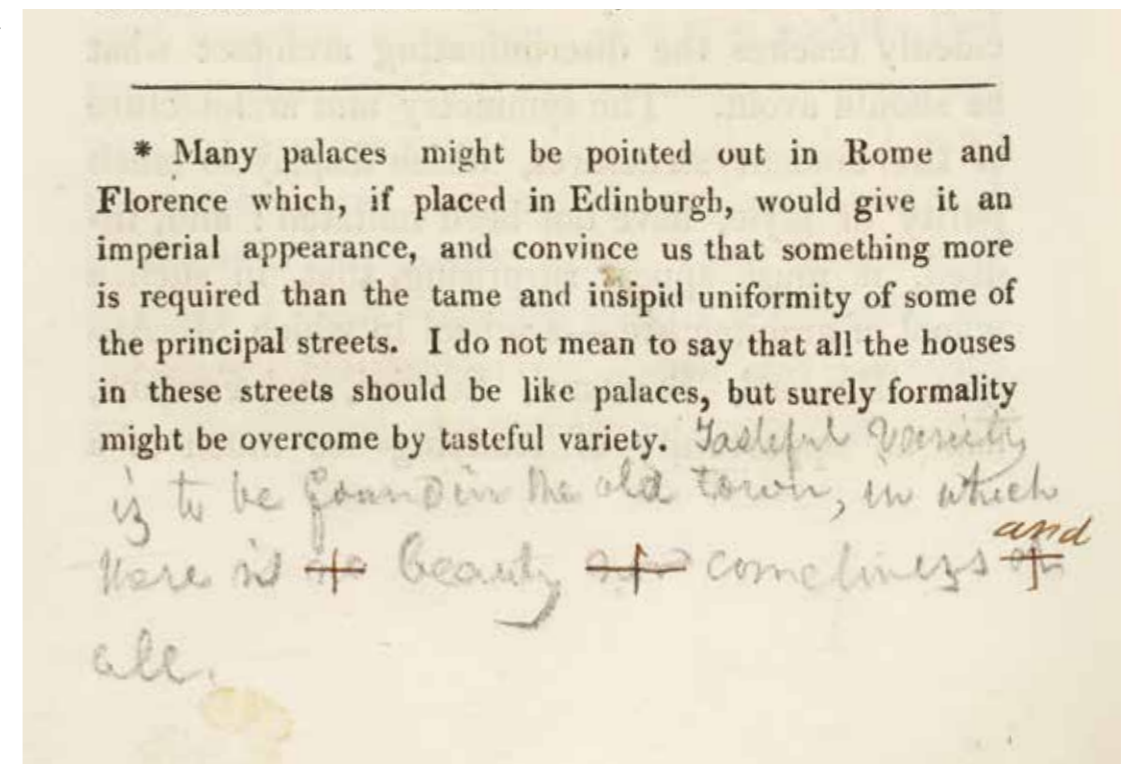 * Many palaces might be pointed out in Rome and
Florence which, if placed in Edinburgh, would give it an
imperial appearance, and convince us that something more
is required than the tame and insipid uniformity of some of
the principal streets. I do not mean to say that all the houses
in these streets should be like palaces, but surely formality
might be overcome by tasteful variety. Tasteful Variety
is to be found in the old town, in which
there is no beauty nor comeliness and
all.